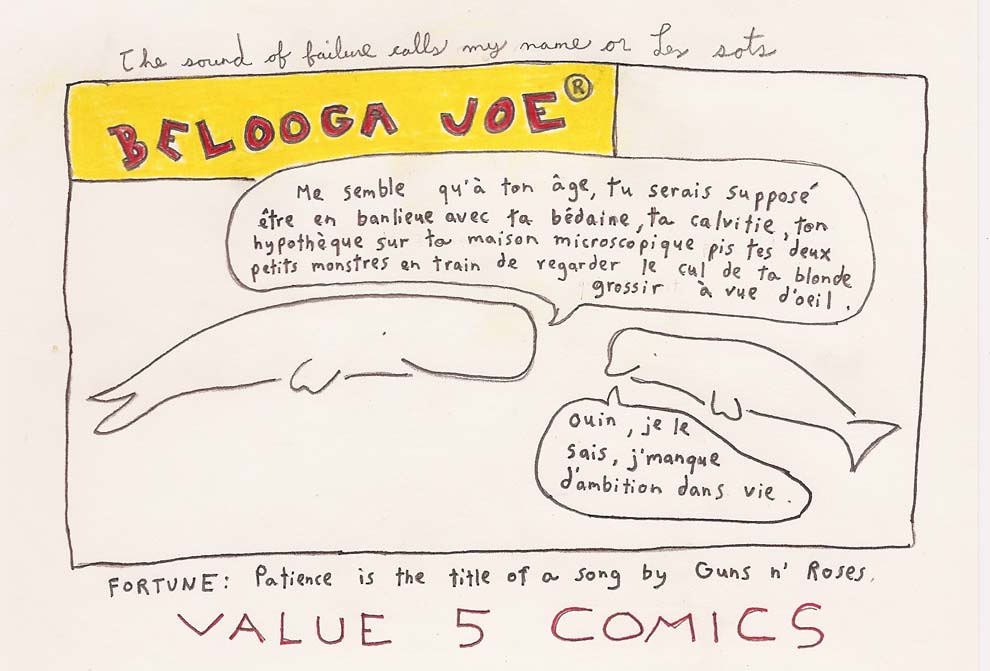 The sound of failure calls my name or Les sots
BELOOGA JOE®
Me semble qu'à ton âge, tu serais supposé
être en banlieue avec ta bédaine, ta calvitie, ton
hypothèque sur ta maison microscopique pis tes deux
petits monstres en train de regarder le cul de ta blonde
grossir à vue d'oeil.
Ouin, je le
sais, j'manque
d'ambition dans vie.
FORTUNE: Patience is the title of a song by Guns n' Roses.
VALUE 5 COMICS